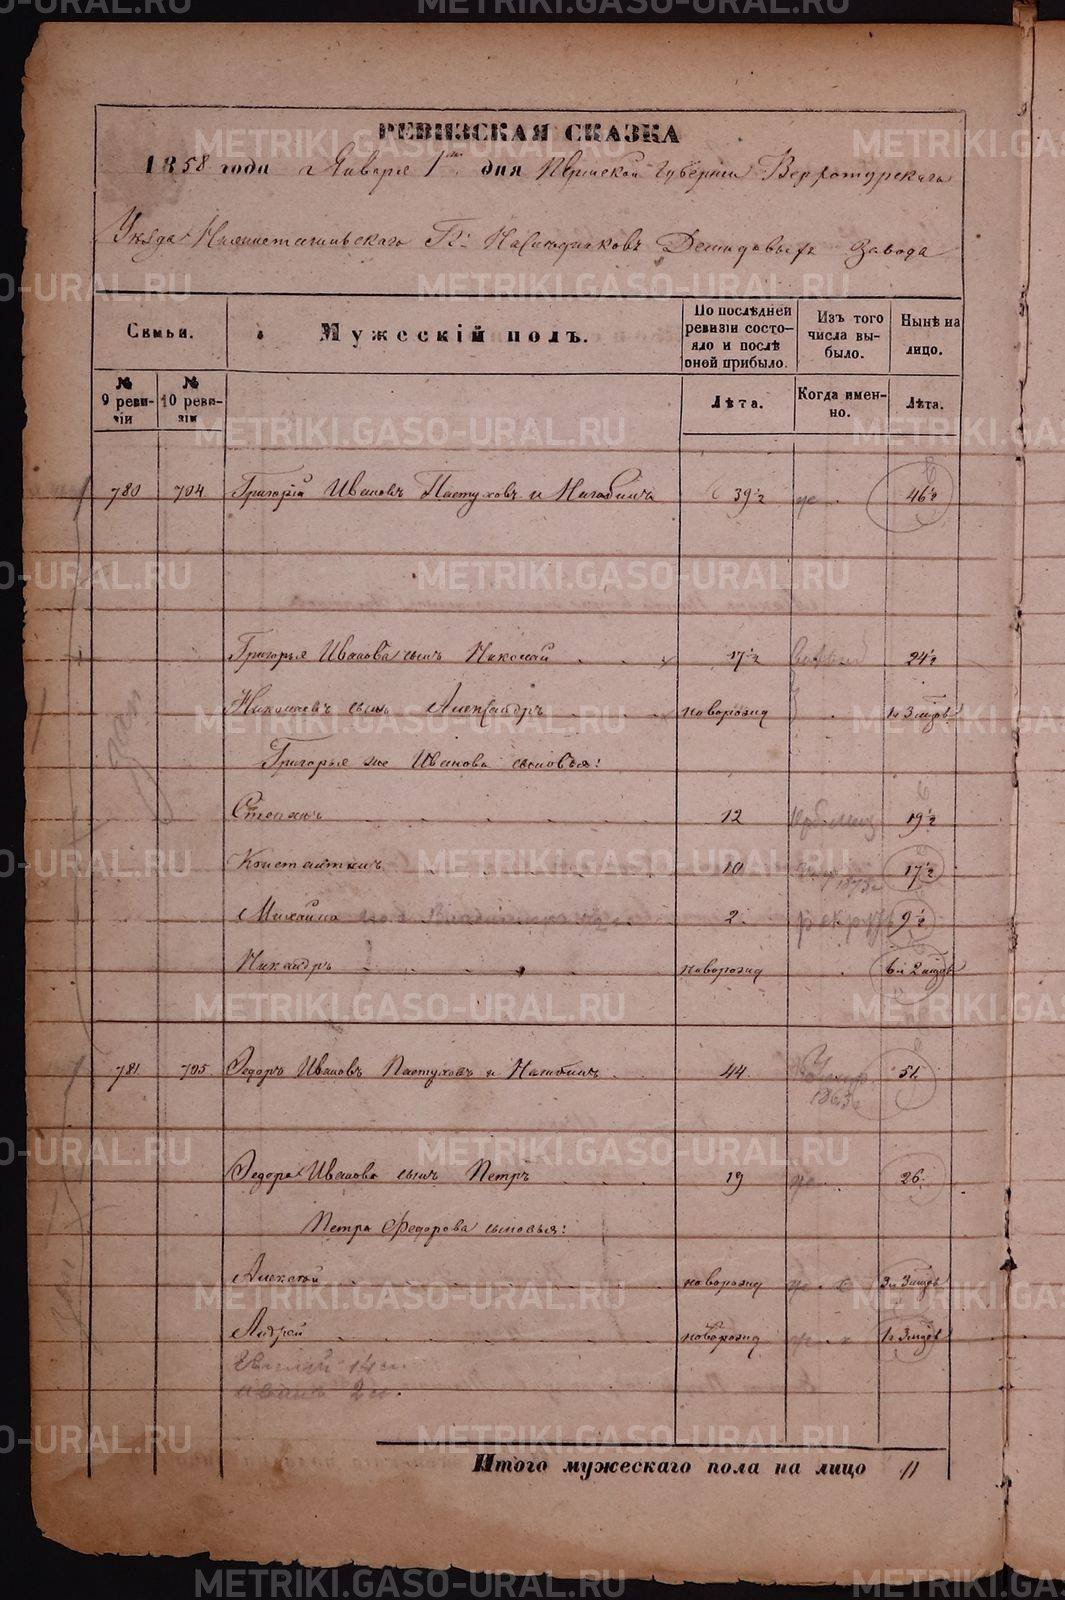 РЕВИЗСКАЯ СКАЗКА
1858 года Января 1го дня Пермской Губернии Верхотурскаго
Уѣзда Нижнетагильскаго Гг. Наслѣдниковъ Демидовыхъ Завода
Семьи. Мужескій полъ. По послѣдней ревизіи состояло и послѣ оней прибыло. Изъ того числа выбыло. Нынѣ на лицо.
№ 9 ревизіи № 10 ревизіи Лѣта. Когда именно. Лѣта.
780 704 Григорій Ивановъ Пастуховъ и 39½ 46½
Григорья Иванова сынъ Николай 17½ 24½
Николаевъ сынъ Александръ новорожд 1 и 3 мцвъ
Григорья же Иванова сыновья:
Степанъ 12 19½
Константинъ 10 1873 17½
Михайло 2 рекрутъ 9½
Никандръ новорожд 6 и 2 мцвъ
781 705 Федоръ Ивановъ Пастуховъ и 44 1863 51
Федора Иванова сынъ Петръ 19 26
Петра Федорова сыновья:
Алексѣй новорожд 3 и 3 мцвъ
Андрей новорожд 1 и 3 мцвъ
14 л.
Иванъ 2 л.
Итого мужескаго пола на лицо 11
METRIKI.GASO-URAL.RU